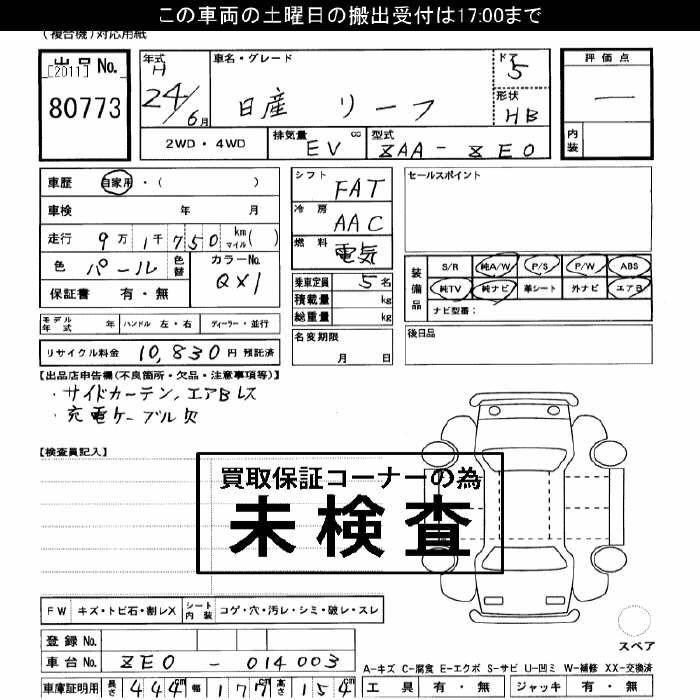 この車両の土曜日の搬出受付は17:00まで
(複合機)対応用紙
出品No.
[2011]
80773
年式
H
24/6月
車名・グレード
日産 リーフ
ドア
5
形状
HB
評価点
—
内装
2WD・4WD
排気量
EV cc
型式
ZAA-ZE0
車歴 自家用・( )
車検 年 月
走行 9万1千750 km マイル( )
色 パール 色替
カラーNo. QX1
保証書 有・無
シフト FAT
冷房 AAC
燃料 電気
乗車定員 5名
積載量 kg
総重量 kg
名変期限
月 日
セールスポイント
装備品
S/R 純A/W P/S P/W ABS
純TV 純ナビ 革シート 外ナビ エアB
ナビ型番:
後日品
モデル年式 年 ハンドル 左・右 ディーラー・並行
リサイクル料金 10,830 円 預託済
【出品店申告欄(不良箇所・欠品・注意事項等)】
・サイドカーテン,エアBレス
・充電ケーブル欠
【検査員記入】
買取保証コーナーの為
未検査
FW キズ・トビ石・割レX シート内装 コゲ・穴・汚レ・シミ・破レ・スレ
登録No.
車台No. ZE0-014003
車庫証明用 長さ 444cm 幅 177cm 高さ 154cm
スペア
A-キズ C-腐食 E-エクボ S-サビ U-凹ミ W-補修 XX-交換済
工具 有・無 ジャッキ 有・無